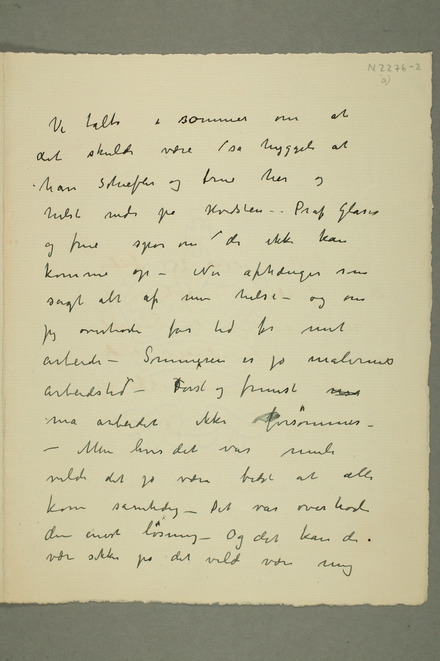 N 2276-2
a)
Vi talte i sommer om at
det skulde være så hyggeli at
han Schiefler og frue her og
helst nede på Hvidsten – Prof Glaser
og frue spør om de ikke kan
komme op – Nu afhænger som
sagt alt af min helse – og om
jeg overhode får tid for mit
arbeide – Sommeren er jo malernes
arbeidstid – Først og fremst
må arbeidet ikke forsømmes –
– Men hvis det var muli
vilde det jo være bedst at alle
kom samtidig – Det var overhode
den eneste løsning – Og det kan de
være sikker på det vild være mig